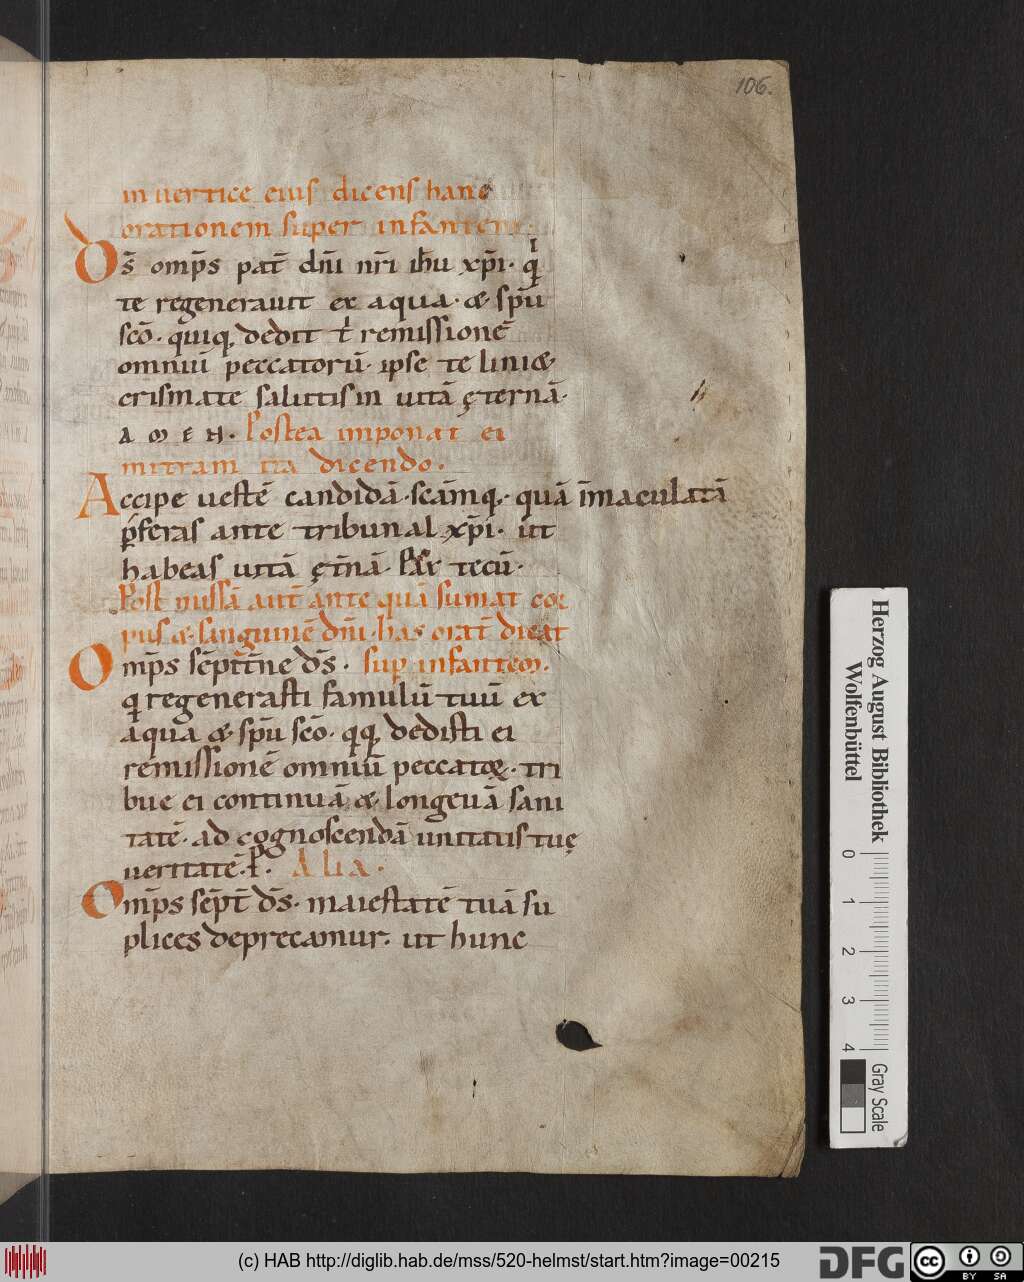 106.
in uertice eius dicens hanc
orationem super infantem.
Ds̄ omp̄s pat̄ dn̄i nr̄i ih̄u xp̄i. qͥ
te regenerauit ex aqua. & sp̄u
sc̄o. quiq; dedit t̄ remissionē
omniū peccatorū. ipse te liniat
crismate salutis in uitā ęternā.
AMEN. Postea imponat ei
mitram ita dicendo.
Accipe uestē candidā. scāmq;. quā īmaculatā
p̄feras ante tribunal xp̄i. ut
habeas uitā ęt̄nā. Pax tecū.
Post missā aut̄ ante quā sumat cor
pus & sanguinē dn̄i. has orat̄ dicat
Omp̄s sēpit̄ne ds̄. sup̄ infantem.
qͥ regenerasti famulū tuū ex
aqua & sp̄u sc̄o. qͥq; dedisti ei
remissionē omniū peccatoꝝ. tri
bue ei continuā & longeuā sani
tatē. ad cognoscendā unitatis tuę
ueritatē. P̄. Alia.
Omp̄s sēpit̄ ds̄. maiestatē tuā su
plices deprecamur. ut hunc
Herzog August Bibliothek
Wolfenbüttel
0 1 2 3 4
Gray Scale
(c) HAB http://diglib.hab.de/mss/520-helmst/start.htm?image=00215
DFG
cc BY SA